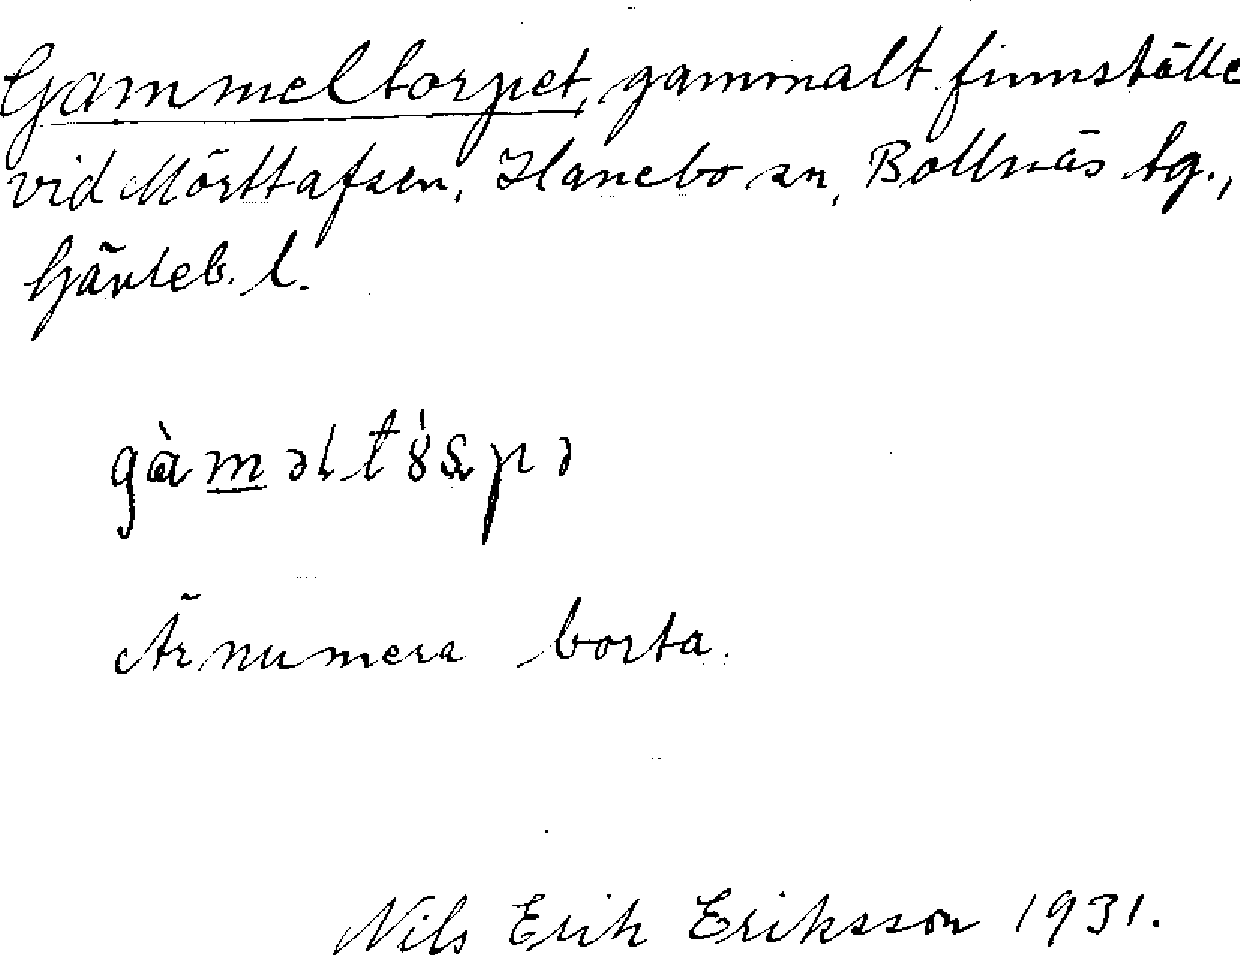 Gammeltorpet, gammalt finnställe
vid Mörttafsen, Hanebo sn, Bollnäs tg.,
Gävleb. l.
gàməltɤ́ʂpə
Är numera borta.
Nils Erik Eriksson 1931.